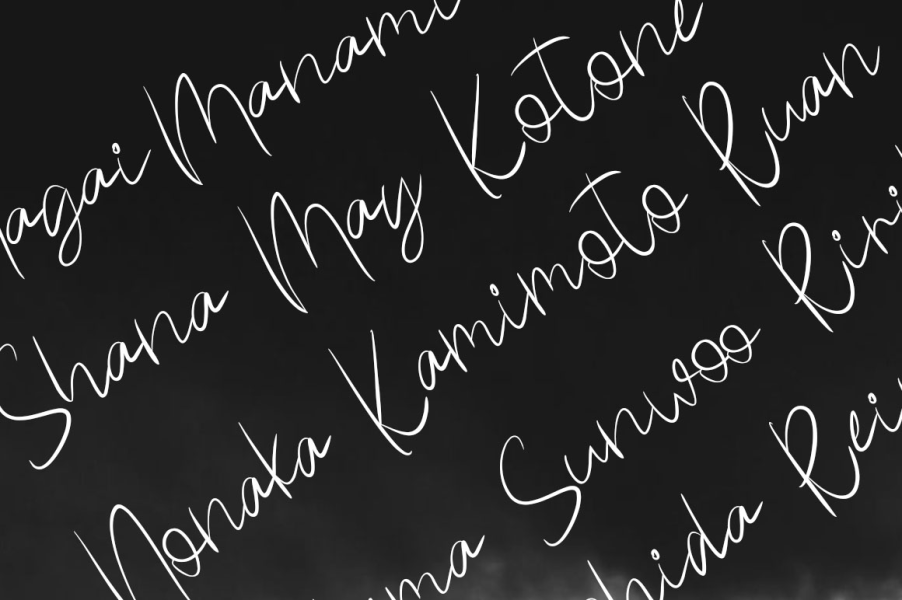 agai Manami
Shana May Kotone
Nonaka Kamimoto Ruan
Sunwoo Rin
hida Rei